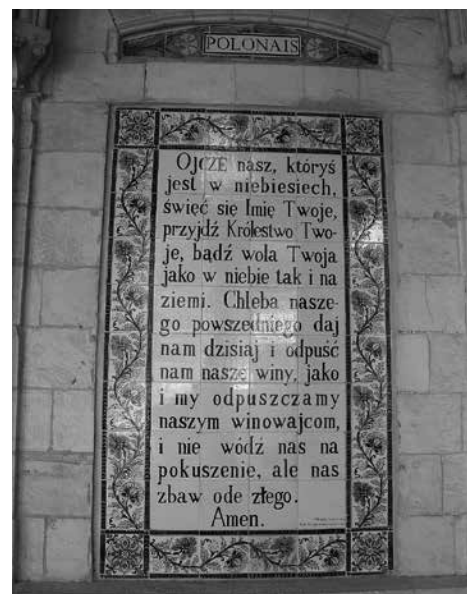 POLONAIS
OJCZE nasz, któryś
jest w niebiesiech,
święć się Imię Twoje,
przyjdź Królestwo Two-
je, bądź wola Twoja
jako w niebie tak i na
ziemi. Chleba nasze-
go powszedniego daj
nam dzisiaj i odpuść
nam nasze winy, jako
i my odpuszczamy
naszym winowajcom,
i nie wódź nas na
pokuszenie, ale nas
zbaw ode złego.
Amen.